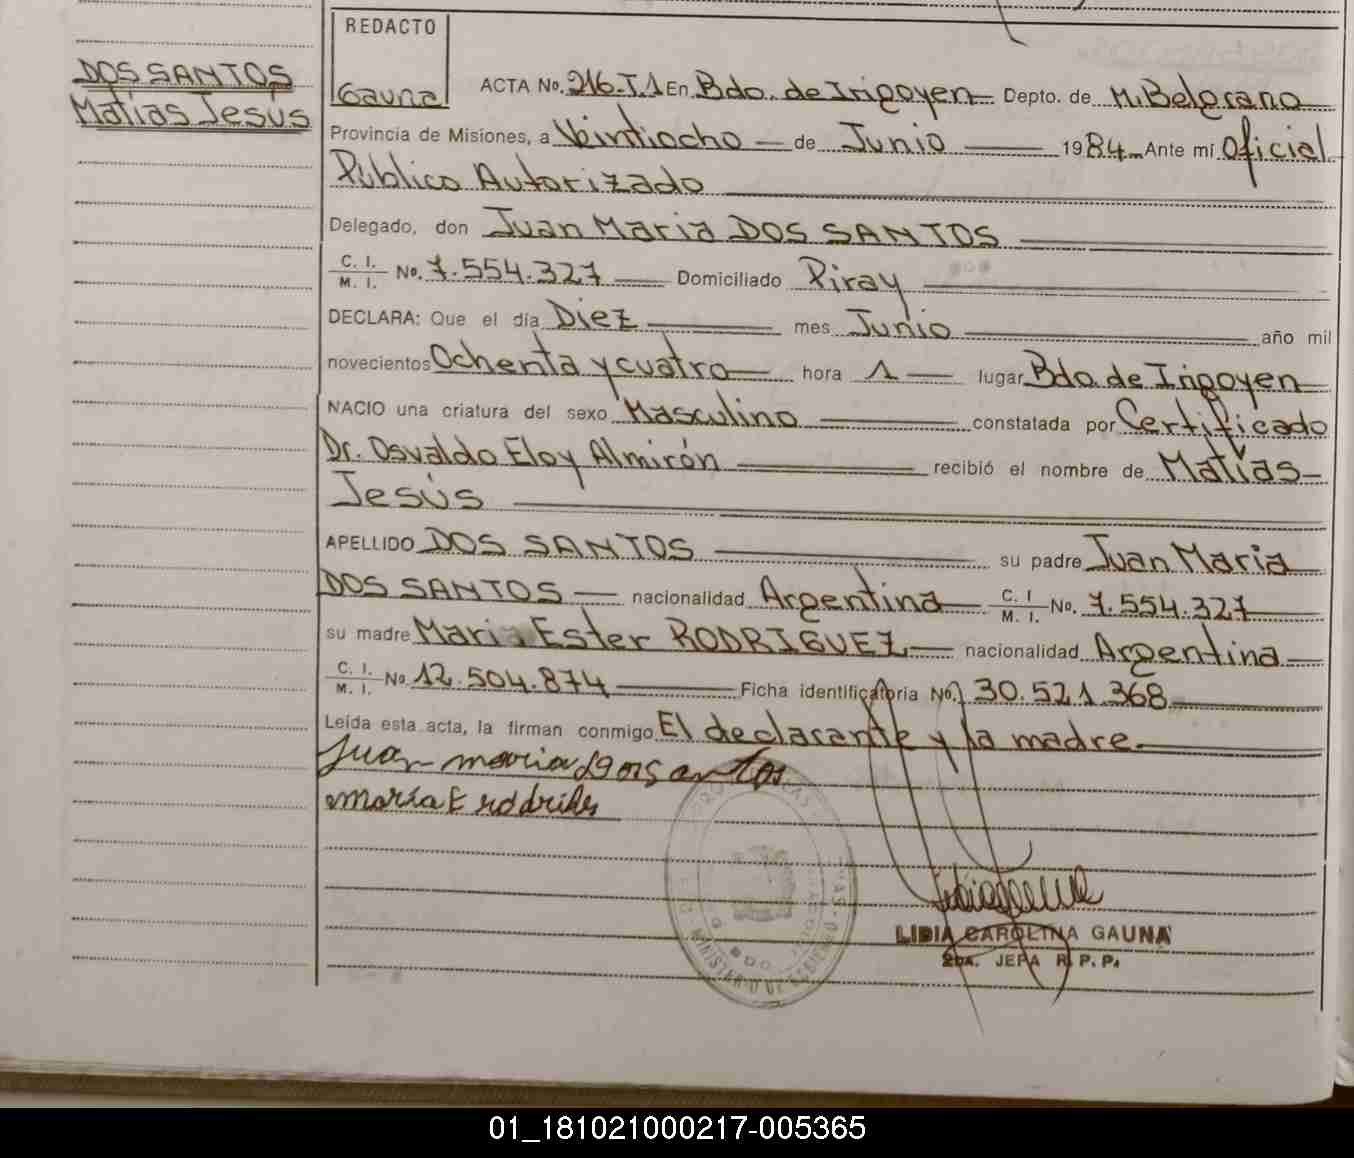 REDACTO
Gauna
DOS SANTOS
Matías Jesús
ACTA No. 216-T.1 En Bdo. de Irigoyen Depto. de M. Belgrano
Provincia de Misiones, a Veintiocho de Junio 1984 Ante mí Oficial
Público Autorizado
Delegado, don Juan Maria DOS SANTOS
C. I.
M. I. No. 7.554.327 Domiciliado Piray
DECLARA: Que el día Diez mes Junio año mil
novecientos Ochenta y cuatro hora 1 lugar Bdo. de Irigoyen
NACIO una criatura del sexo Masculino constatada por Certificado
Dr. Osvaldo Eloy Almirón recibió el nombre de Matías
Jesús
APELLIDO DOS SANTOS su padre Juan Maria
DOS SANTOS nacionalidad Argentina C. I
M. I. No. 7.554.327
su madre Maria Ester RODRIGUEZ nacionalidad Argentina
C. I.
M. I. No 12.504.874 Ficha identificatoria No. 30.521.368
Leída esta acta, la firman conmigo El declarante y la madre.
Juan maria Dos santos
Maria E
LIDIA CAROLINA GAUNA
2da. JEFA R. P. P.
01_181021000217-005365